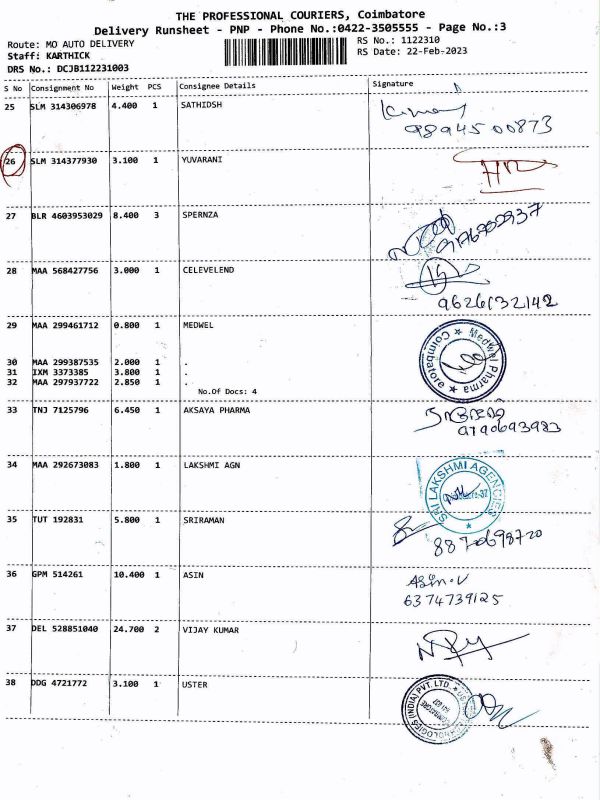 THE PROFESSIONAL COURIERS, Coimbatore
Delivery Runsheet - PNP - Phone No.:0422-3505555 - Page No.:3
Route: MO AUTO DELIVERY
RS No.: 1122310
Staff: KARTHICK
RS Date: 22-Feb-2023
DRS No.: DCJB112231003
S No Consignment No Weight PCS Consignee Details Signature
25 SLM 314306978 4.400 1 SATHIDSH
9894500873
26 SLM 314377930 3.100 1 YUVARANI
27 BLR 4603953029 8.400 3 SPERNZA
28 MAA 568427756 3.000 1 CELEVELEND
9626632142
29 MAA 299461712 0.800 1 MEDWEL
Medwel Pharma
Coimbatore
30 MAA 299387535 2.000 1 .
31 IXM 3373385 3.800 1 .
32 MAA 297937722 2.850 1 .
No.Of Docs: 4
33 TNJ 7125796 6.450 1 AKSAYA PHARMA
9790693983
34 MAA 292673083 1.800 1 LAKSHMI AGN
SRI LAKSHMI AGENCIES
35 TUT 192831 5.800 1 SRIRAMAN
36 GPM 514261 10.400 1 ASIN
Asin.V
6374739125
37 DEL 528851040 24.700 2 VIJAY KUMAR
38 DDG 4721772 3.100 1 USTER